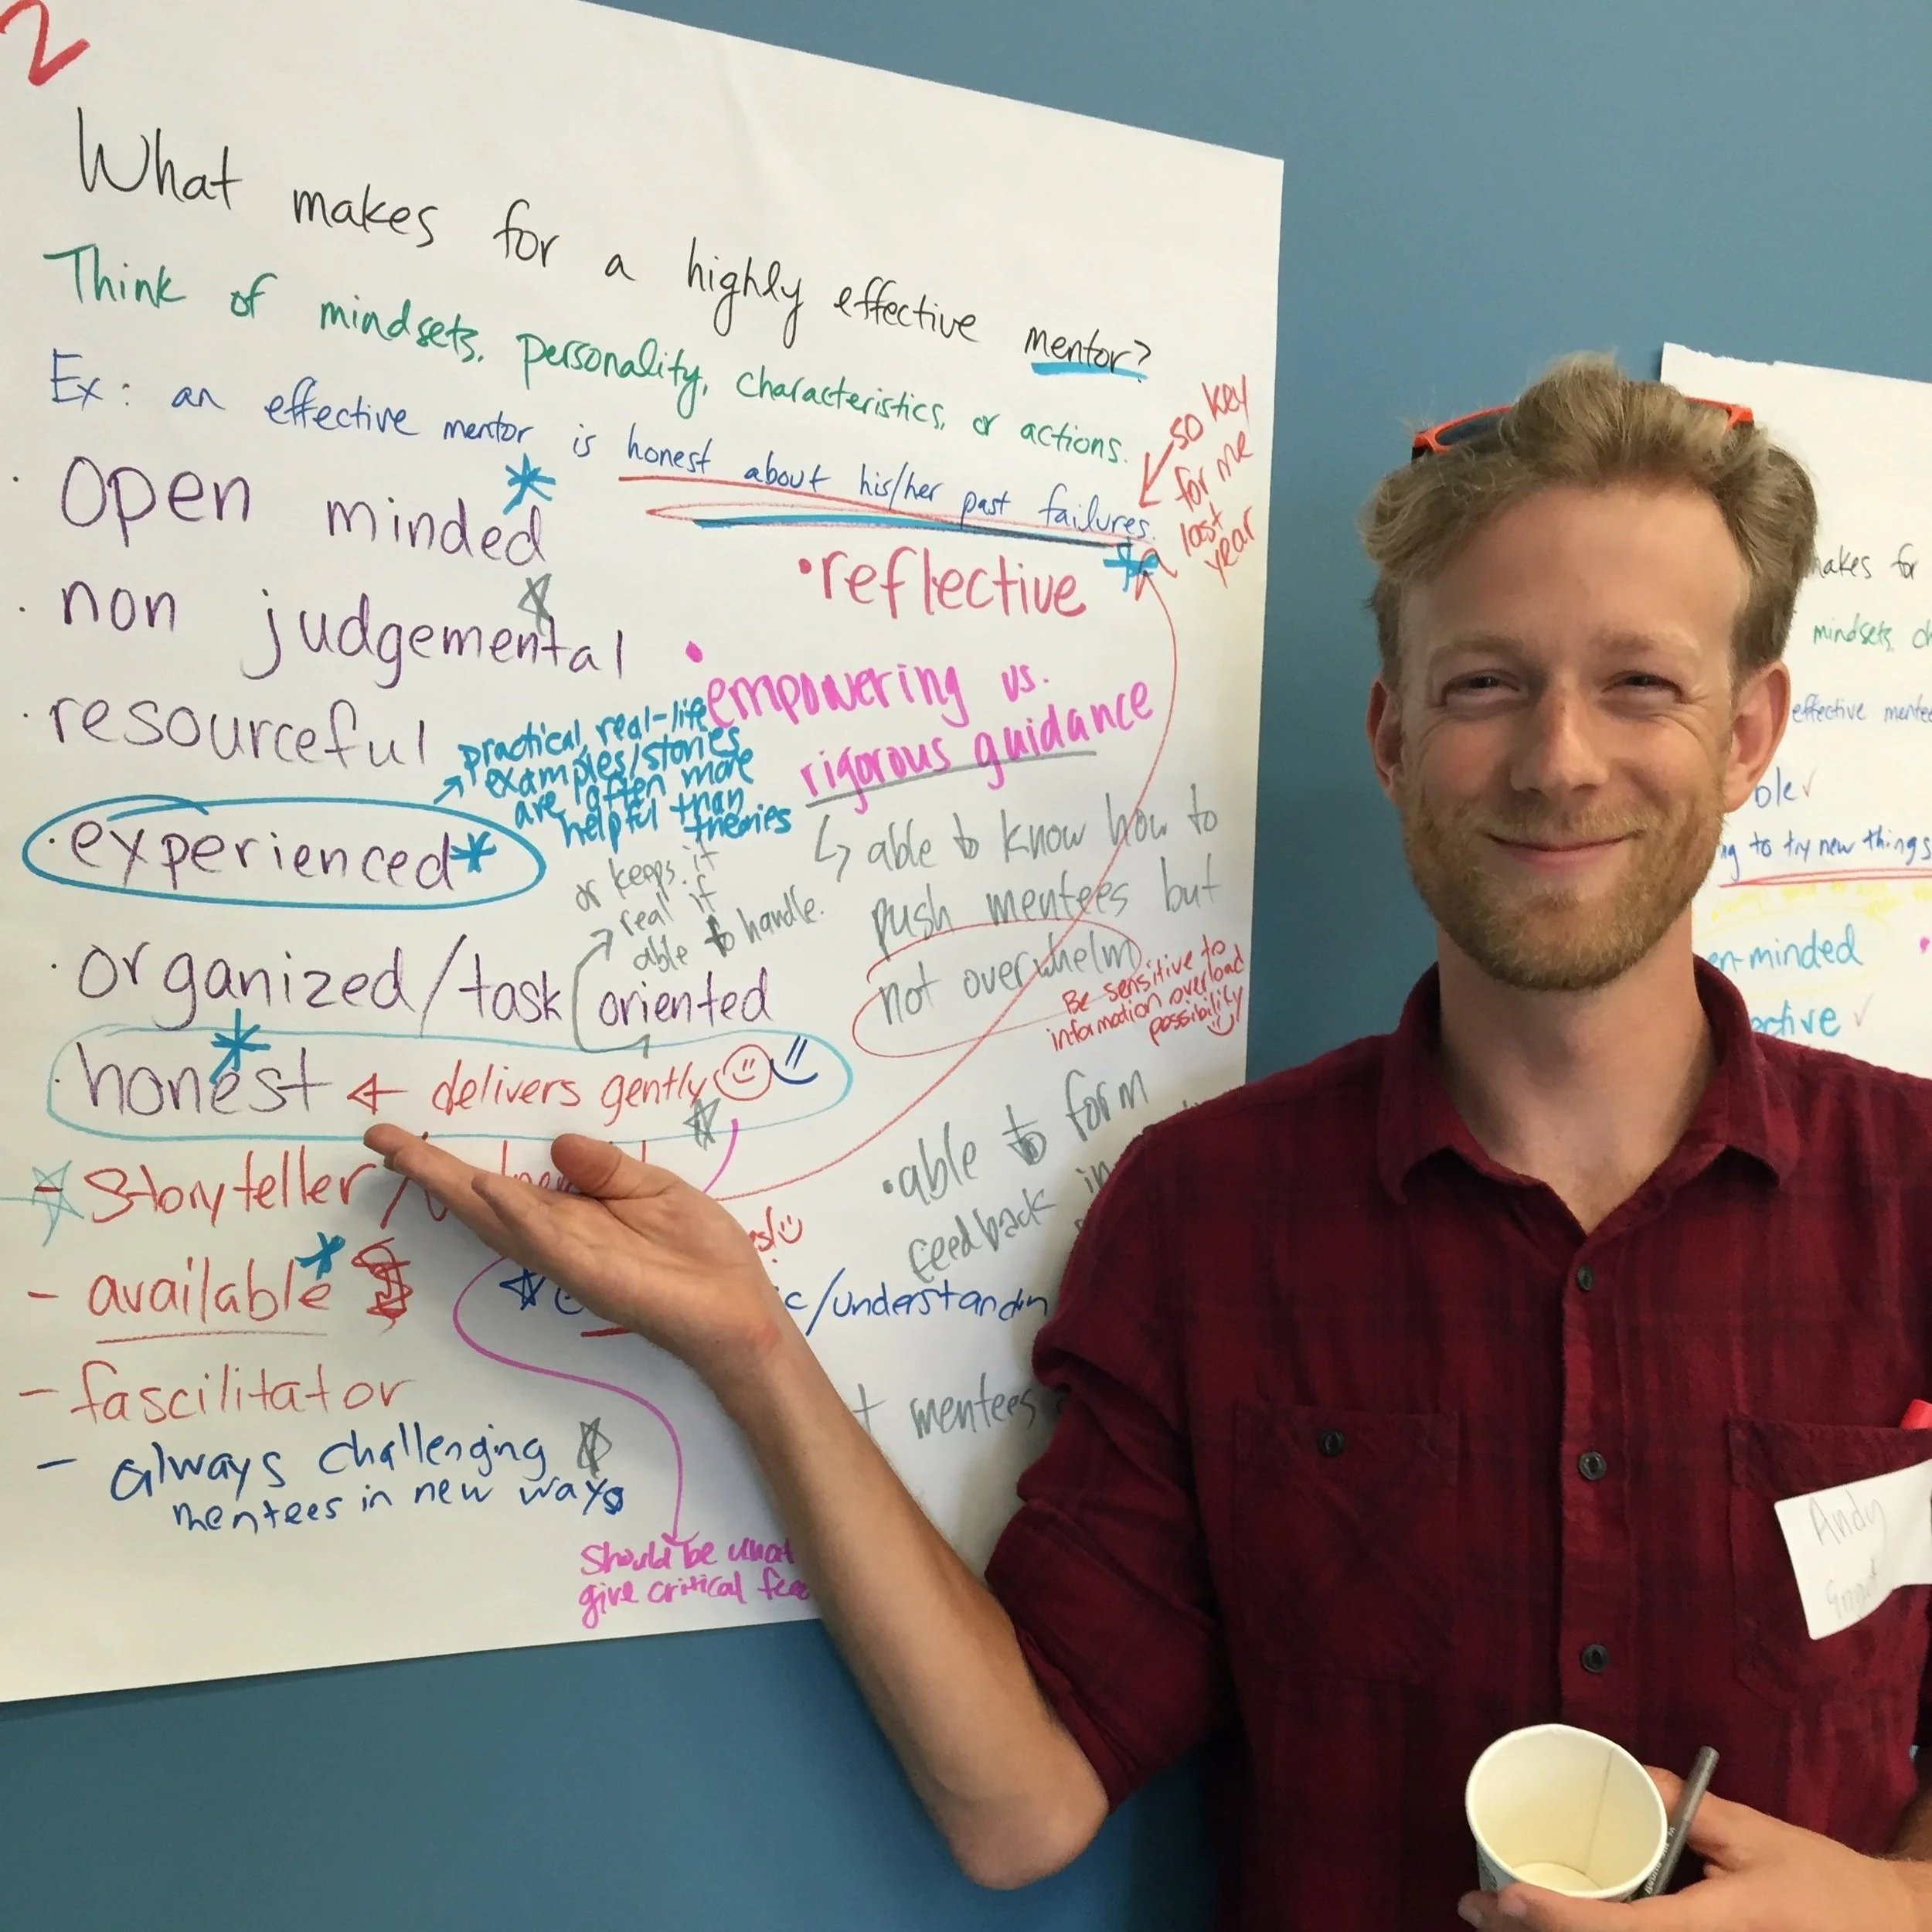 2
What makes for a highly effective mentor?
Think of mindsets, personality, characteristics, or actions.
Ex: an effective mentor is honest about his/her past failures.
so key
for me
last
year
· open minded
· non judgemental
· resourceful
· experienced
practical, real-life
examples/stories
are often more
helpful than
theories
· organized/task oriented
or keeps it
real if
able to handle.
· honest ← delivers gently
- Storyteller /
- available
- fascilitator
- always challenging
mentees in new ways
• reflective
• empowering vs.
rigorous guidance
↳ able to know how to
push mentees but
not overwhelm
Be sensitive to
information overload
possibility
• able to form
feedback in
c/understandin
mentees
Should be what
give critical fee
makes for
mindsets, ch
effective mentee
ble ✓
ng to try new things
en-minded
ective ✓
Andy